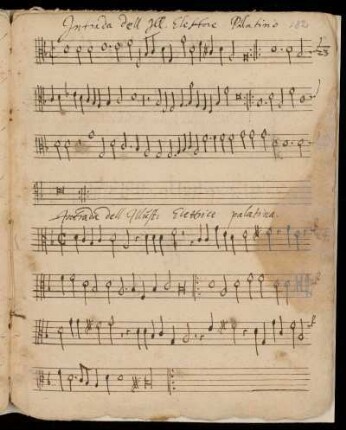 Intrada dell Ill. Elettore Palatino
Intrada dell Illust. Elettrice palatina.